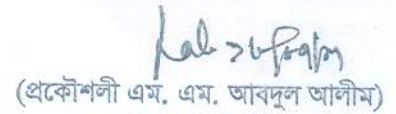 (প্রকৌশলী এম. এম. আবদুল আলীম)